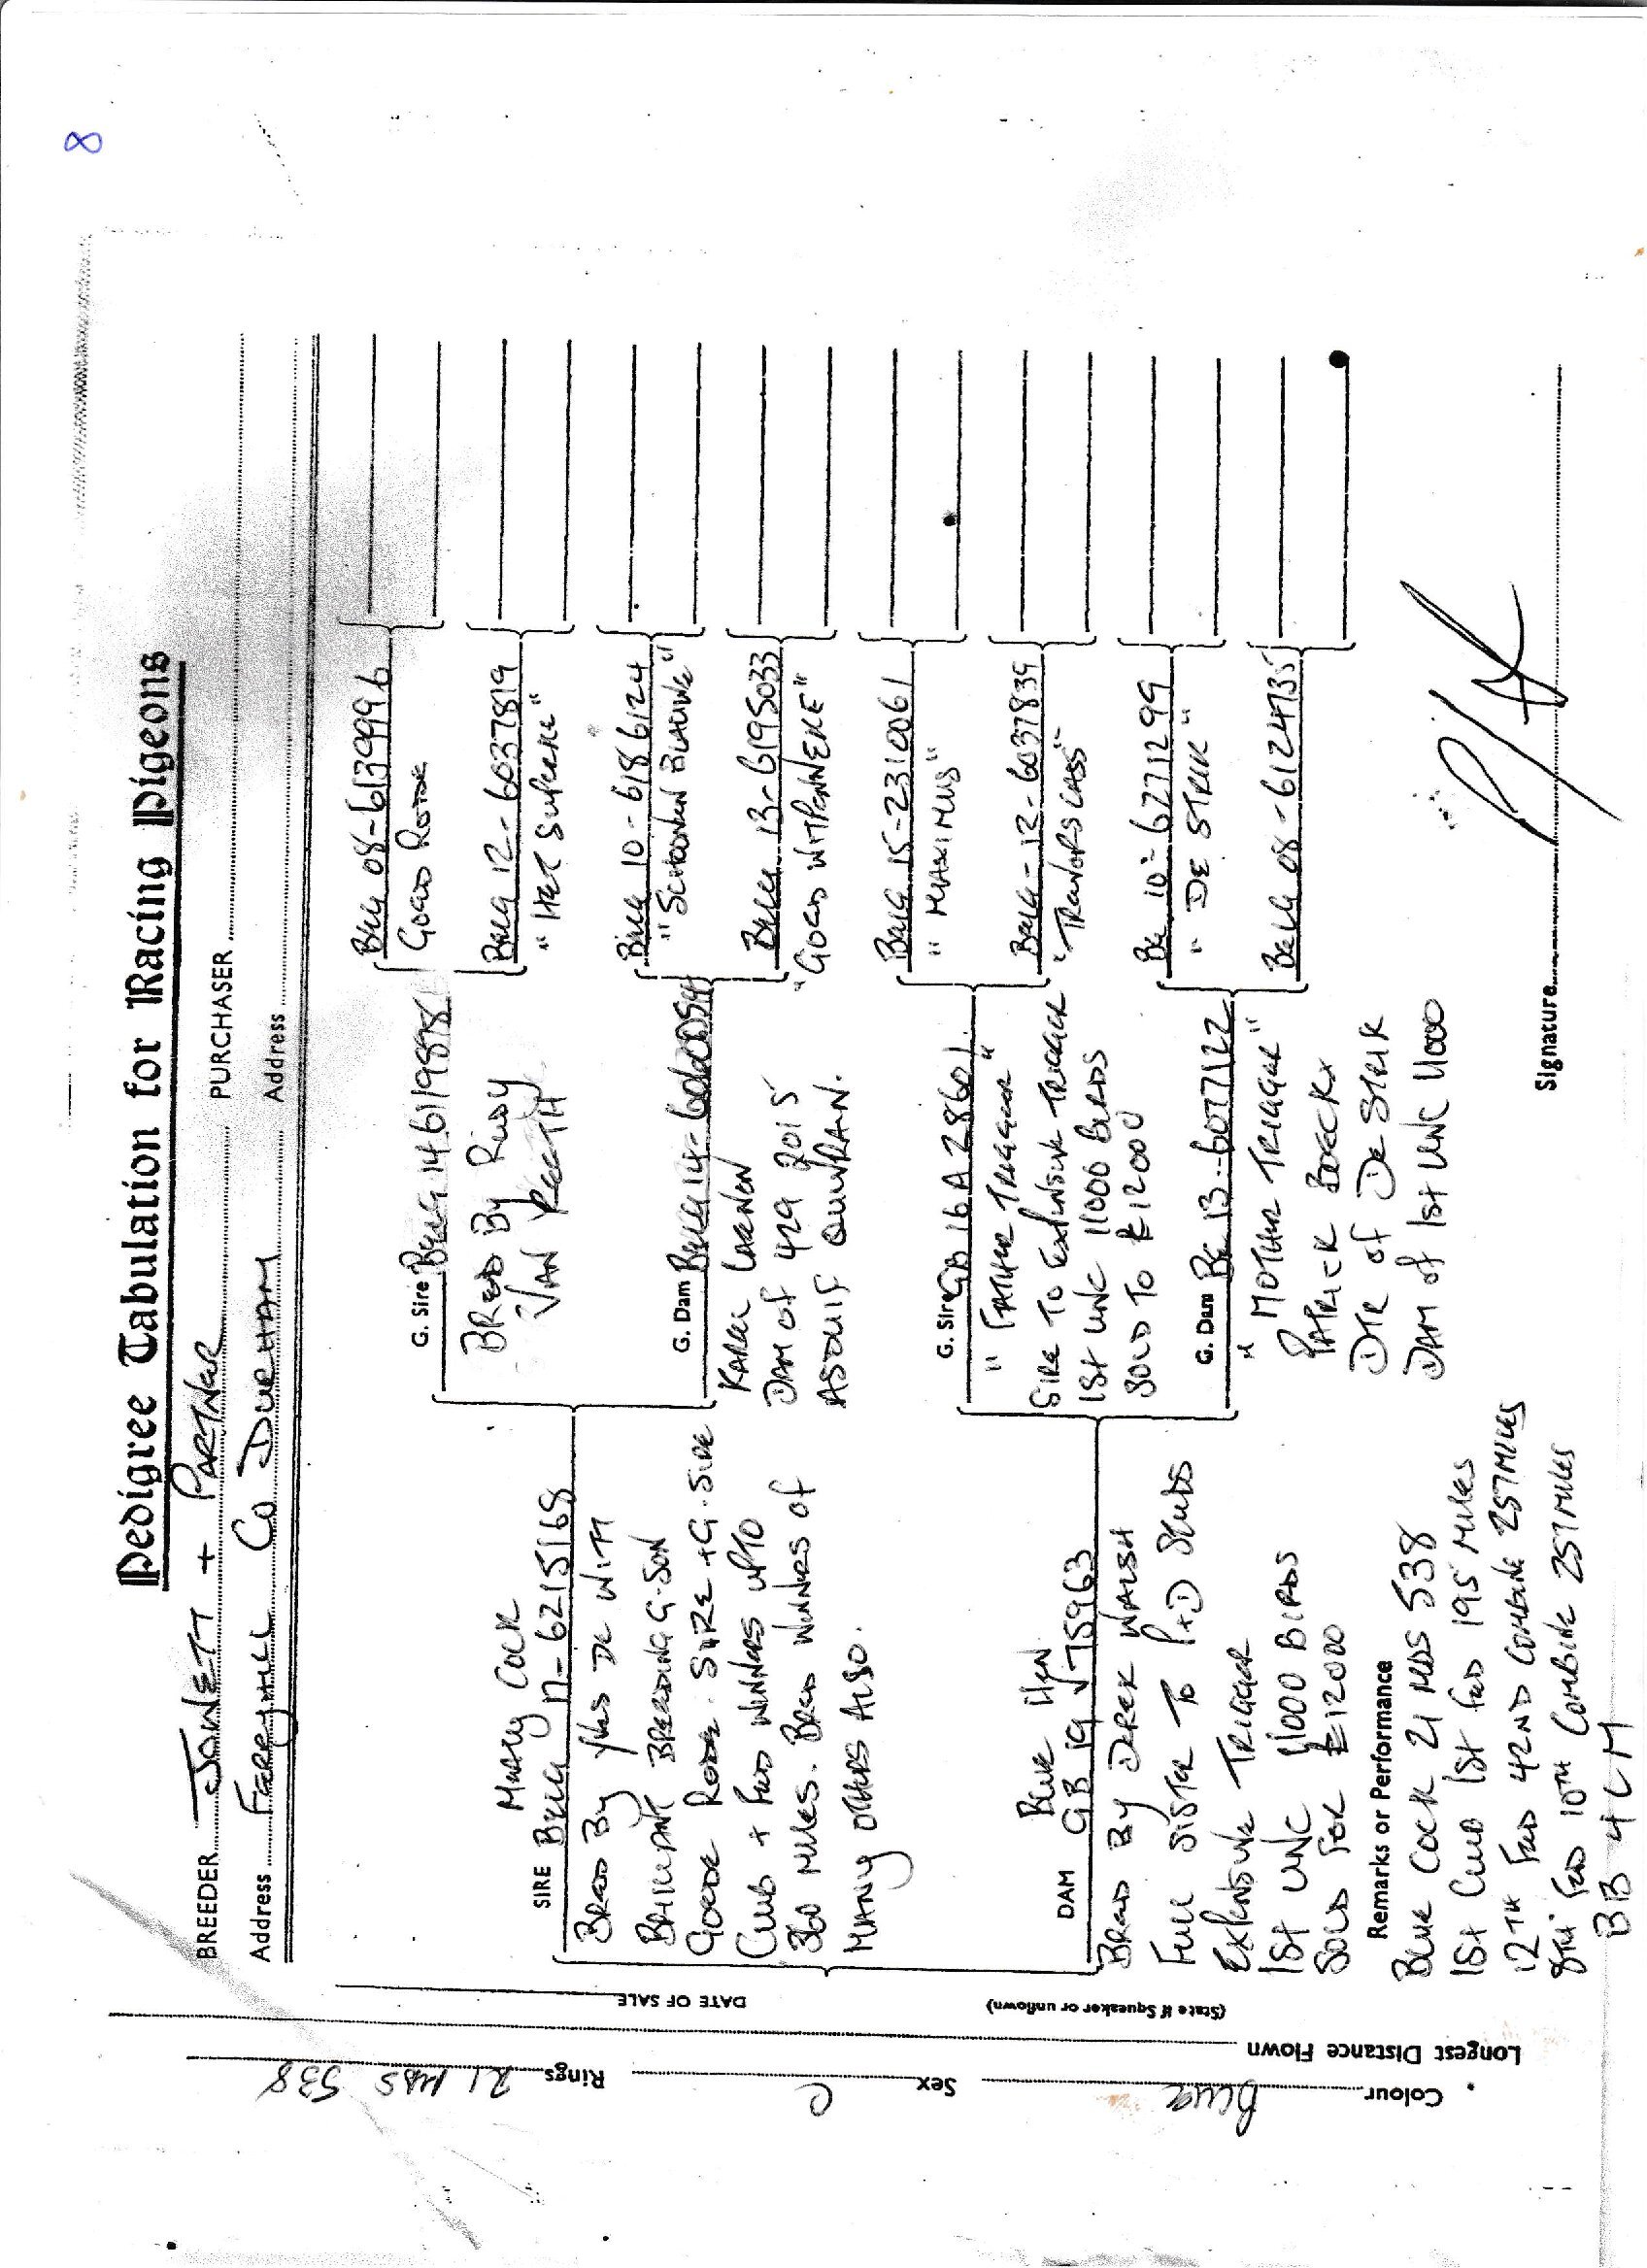 8
Pedigree Tabulation for Racing Pigeons
BREEDER JOWETT + PARTNER PURCHASER
Address FERRYHILL CO DURHAM Address
Colour Blue
Sex C
Rings 21 MDS 538
Longest Distance Flown
(State if Squeaker or unflown)
DATE OF SALE
MEALY COCK
SIRE BELG 17-6215168
BRED BY YVES DE WITH
BRILLIANT BREEDING G-SON
GOEDE RODE. SIRE + G-SIRE
CLUB + FED WINNERS UPTO
360 MILES. BRED WINNERS OF
MANY OTHERS ALSO.
G. Sire BELG 14 6119898
BRED BY RUDY
VAN REETH
G. Dam BELG 14-6060054
KAREL LAENEN
DAM OF 429 2015
ASDUIF QUIVRAIN.
BELG 08-6139996
GOED RODE
BELG 12-6037819
"HET SUPERKE"
BELG 10-6186124
"SCHOONEN BLAUWE"
BELG 13-6195033
"GOED WITPENNEKE"
BLUE HEN
DAM GB 19 V75963
BRED BY DEREK WALSH
FULL SISTER TO P+D STUBBS
EXPENSIVE TRIGGER
1ST UNC 11000 BIRDS
SOLD FOR £12000
G. Sire GB 16 A 28601
"FATHER TRIGGER"
SIRE TO EXPENSIVE TRIGGER
1ST UNC 11000 BIRDS
SOLD TO £12000
G. Dam BE 13-6077122
"MOTHER TRIGGER"
PATRICK BOECKX
DTR OF DE STER
DAM OF 1ST UNC 11000
BELG 15-2310061
"MAXIMUS"
BELG-12-6037839
"TREVORS LASS"
BE 10-6271299
"DE STER"
BELG 08-6124735
Remarks or Performance
BLUE COCK 21 MDS 538
1ST CLUB 1ST FED 195 MILES
12TH FED 42ND COMBINE 257 MILES
8TH FED 10TH COMBINE 257 MILES
BB 4 CM
Signature